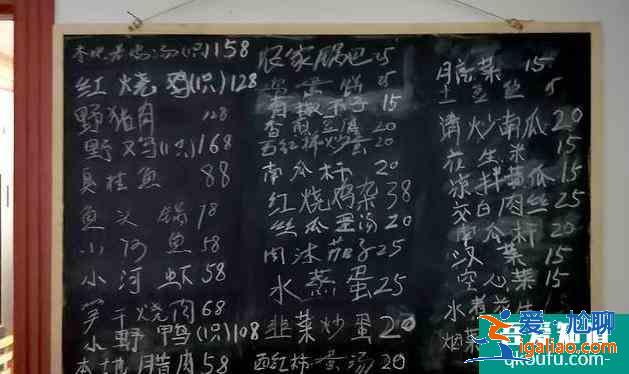 本地老鸡汤(只)158
红烧鸡(只)128
野猪肉 128
野鸡(只)168
臭桂鱼 88
鱼头锅 78
小河鱼 58
小河虾 58
笋干烧肉 68
小野鸭(只)108
本地腊肉 58
农家锅巴 25
鸡蛋饼 25
青椒干子 15
香煎豆腐 20
西红柿炒蛋 20
南瓜杆 20
红烧鸡杂 38
丝瓜蛋汤 20
肉沫茄子 25
水蒸蛋 25
韭菜炒蛋 20
西红柿蛋汤 20
菜 15
土豆丝 15
清炒南瓜 20
花生米 15
凉拌黄瓜 15
茭白肉丝 25
南瓜杆 20
汉菜 15
空心菜 15
水煮花生
爱尬聊
igaliao.com
qk9ufu.com